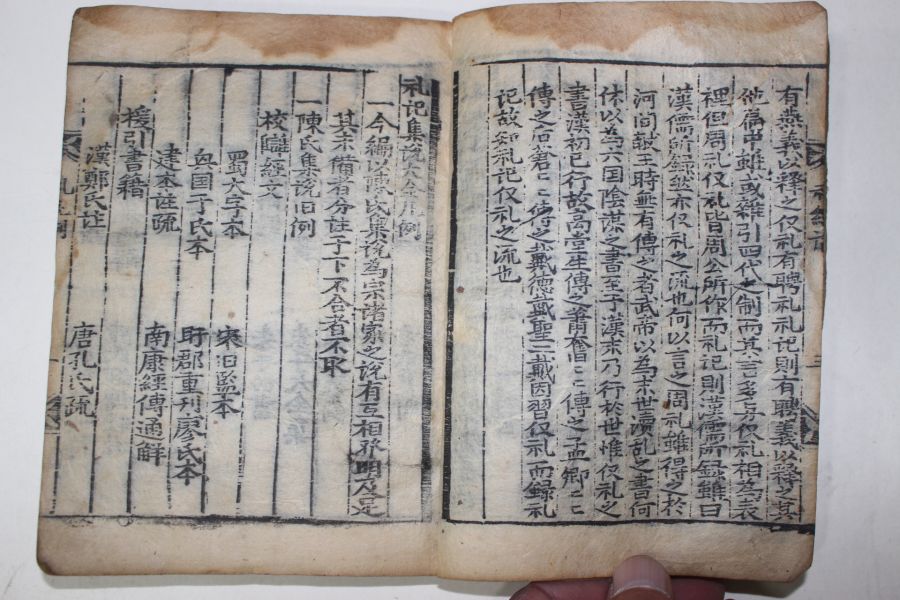 有燕義以釋之仪礼有聘礼礼记則有聘義以釋之其
他篇中雖或雜引四代之制而其言多与仪礼相為表
裡但周礼仪礼皆周公所作而礼记則漢儒所録雖曰
漢儒所録然亦仪礼之流也何以言之周礼雖得之於
河间献王時無有傳之者武帝以為末世瀆乱之書何
休以為六国陰謀之書至于漢末乃行於世惟仪礼之
書漢初已行故高堂生傳之蕭奮〻〻傳之孟卿〻〻
傳之后蒼〻〻傳之戴德戴聖二戴因習仪礼而録礼
记故知礼记仪礼之流也
礼记集說大全凡例
一今編以陳氏集說為宗諸家之說有互相發明及足
其未備者分註于下不合者不取
一陳氏集說旧例
校讎經文
蜀大字本 宋旧監本
興国于氏本 盱郡重刊廖氏本
建本註疏 南康經傳通解
援引書籍
漢鄭氏註 唐孔氏疏